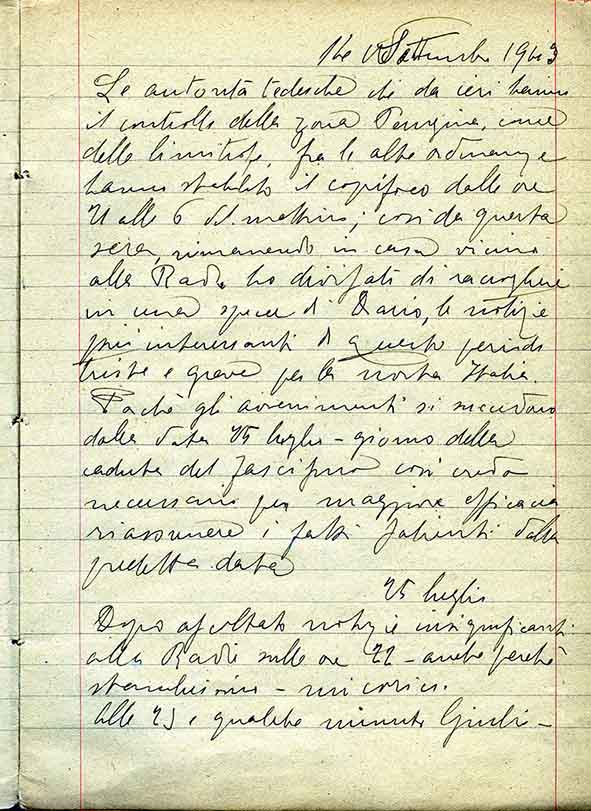 14 Settembre 1943
Le autorità tedesche che da ieri hanno
il controllo della zona Perugina, come
delle limitrofe, fra le altre ordinanze
hanno stabilito il coprifoco dalle ore
21 alle 6 del mattino; così da questa
sera, rimanendo in casa vicino
alla Radio ho divisato di raccogliere
in una specie di Diario, le notizie
più interessanti di questo periodo
triste e grave per la nostra Italia.
Poichè gli avvenimenti si succedono
dalla data 25 luglio - giorno della
caduta del fascismo così credo
necessario per maggiore efficacia
riassumere i fatti salienti dalla
predetta data
25 luglio
Dopo ascoltato notizie insignificanti
alla Radio sulle ore 22 - anche perchè
stanchissimo - mi corico.
Alle 23 e qualche minuto Giuli-